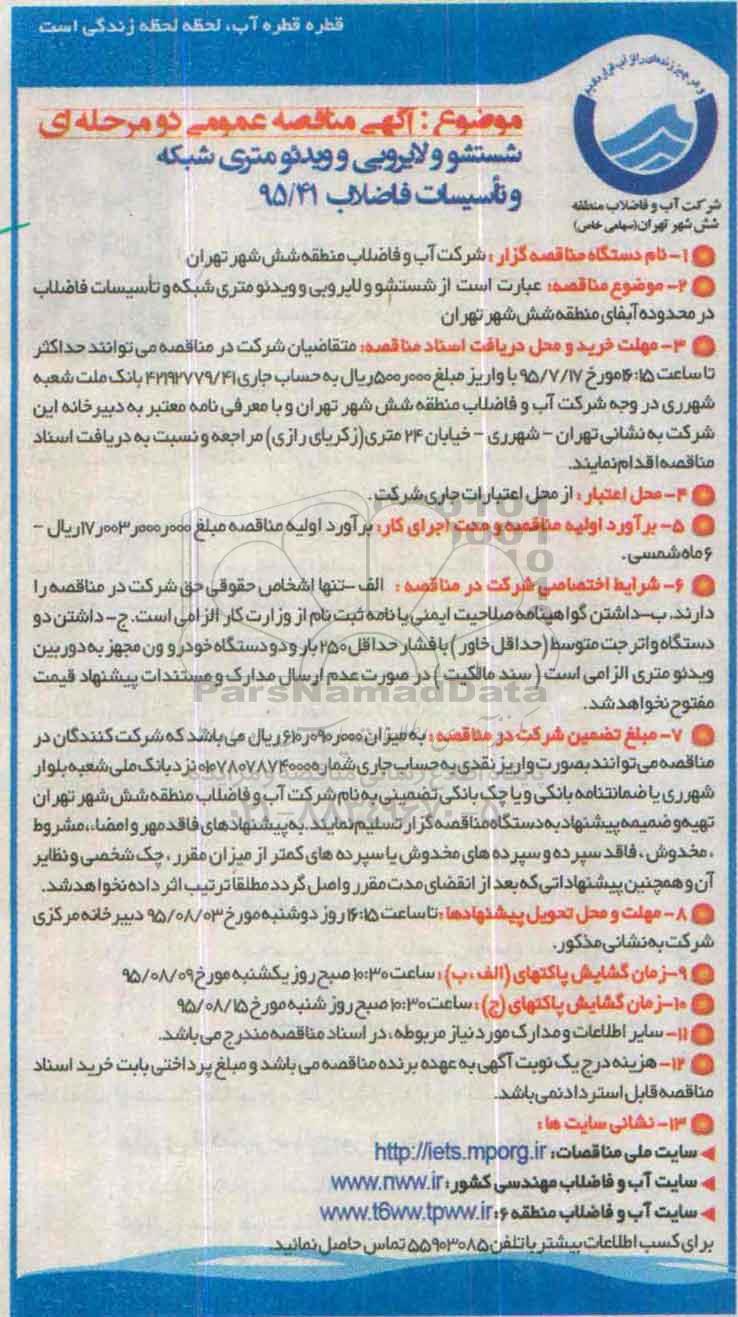 قطره قطره آب، لحظه لحظه زندگی است
و هر چیز زنده‌ای را از آب قرار دادیم
شرکت آب و فاضلاب منطقه
شش شهر تهران (سهامی خاص)
موضوع : آگهی مناقصه عمومی دو مرحله ای
شستشو و لایروبی و ویدئو متری شبکه
و تأسیسات فاضلاب ۹۵/۴۱
۱- نام دستگاه مناقصه گزار : شرکت آب و فاضلاب منطقه شش شهر تهران
۲- موضوع مناقصه: عبارت است از شستشو و لایروبی و ویدئو متری شبکه و تأسیسات فاضلاب
در محدوده آبفای منطقه شش شهر تهران
۳- مهلت خرید و محل دریافت اسناد مناقصه: متقاضیان شرکت در مناقصه می توانند حداکثر
تا ساعت ۱۶:۱۵ مورخ ۹۵/۷/۱۷ با واریز مبلغ ۵۰۰٫۰۰۰ ریال به حساب جاری ۴۲۱۹۲۷۷۹/۴۱ بانک ملت شعبه
شهرری در وجه شرکت آب و فاضلاب منطقه شش شهر تهران و با معرفی نامه معتبر به دبیرخانه این
شرکت به نشانی تهران - شهرری - خیابان ۲۴ متری (زکریای رازی) مراجعه و نسبت به دریافت اسناد
مناقصه اقدام نمایند.
۴- محل اعتبار : از محل اعتبارات جاری شرکت .
۵- برآورد اولیه مناقصه و مدت اجرای کار: برآورد اولیه مناقصه مبلغ ۱۷٫۰۰۳٫۰۰۰٫۰۰۰ ریال -
۶ ماه شمسی .
۶- شرایط اختصاصی شرکت در مناقصه : الف -تنها اشخاص حقوقی حق شرکت در مناقصه را
دارند. ب-داشتن گواهینامه صلاحیت ایمنی یا نامه ثبت نام از وزارت کار الزامی است. ج- داشتن دو
دستگاه واتر جت متوسط (حداقل خاور) با فشار حداقل ۲۵۰ بار و دو دستگاه خودرو ون مجهز به دوربین
ویدئو متری الزامی است ( سند مالکیت ) در صورت عدم ارسال مدارک و مستندات پیشنهاد قیمت
مفتوح نخواهد شد.
ParsNamadData
۷- مبلغ تضمین شرکت در مناقصه : به میزان ۶۱۰٫۰۹۰٫۰۰۰ ریال می باشد که شرکت کنندگان در
مناقصه می توانند بصورت واریز نقدی به حساب جاری شماره ۰۱۰۷۸۰۷۸۷۴۰۰۰ نزد بانک ملی شعبه بلوار
شهرری یا ضمانتنامه بانکی و یا چک بانکی تضمینی به نام شرکت آب و فاضلاب منطقه شش شهر تهران
تهیه و ضمیمه پیشنهاد به دستگاه مناقصه گزار تسلیم نمایند. به پیشنهادهای فاقد مهر و امضاء، مشروط
، مخدوش ، فاقد سپرده و سپرده های مخدوش یا سپرده های کمتر از میزان مقرر ، چک شخصی و نظایر
آن و همچنین پیشنهاداتی که بعد از انقضای مدت مقرر واصل گردد مطلقا ترتیب اثر داده نخواهد شد.
۸- مهلت و محل تحویل پیشنهادها : تا ساعت ۱۶:۱۵ روز دوشنبه مورخ ۹۵/۰۸/۰۳ دبیرخانه مرکزی
شرکت به نشانی مذکور.
۹- زمان گشایش پاکتهای (الف ، ب) : ساعت ۱۰:۳۰ صبح روز یکشنبه مورخ ۹۵/۰۸/۰۹
۱۰- زمان گشایش پاکتهای (ج) : ساعت ۱۰:۳۰ صبح روز شنبه مورخ ۹۵/۰۸/۱۵
۱۱- سایر اطلاعات و مدارک مورد نیاز مربوطه، در اسناد مناقصه مندرج می باشد.
۱۲- هزینه درج یک نوبت آگهی به عهده برنده مناقصه می باشد و مبلغ پرداختی بابت خرید اسناد
مناقصه قابل استرداد نمی باشد.
۱۳- نشانی سایت ها :
سایت ملی مناقصات: http://iets.mporg.ir
سایت آب و فاضلاب مهندسی کشور: www.nww.ir
سایت آب و فاضلاب منطقه ۶: www.t6ww.tpww.ir
برای کسب اطلاعات بیشتر با تلفن ۵۵۹۰۳۰۸۵ تماس حاصل نمائید.